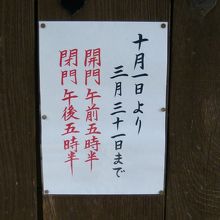 十月一日より
三月三十一日まで
開門午前五時半
閉門午後五時半